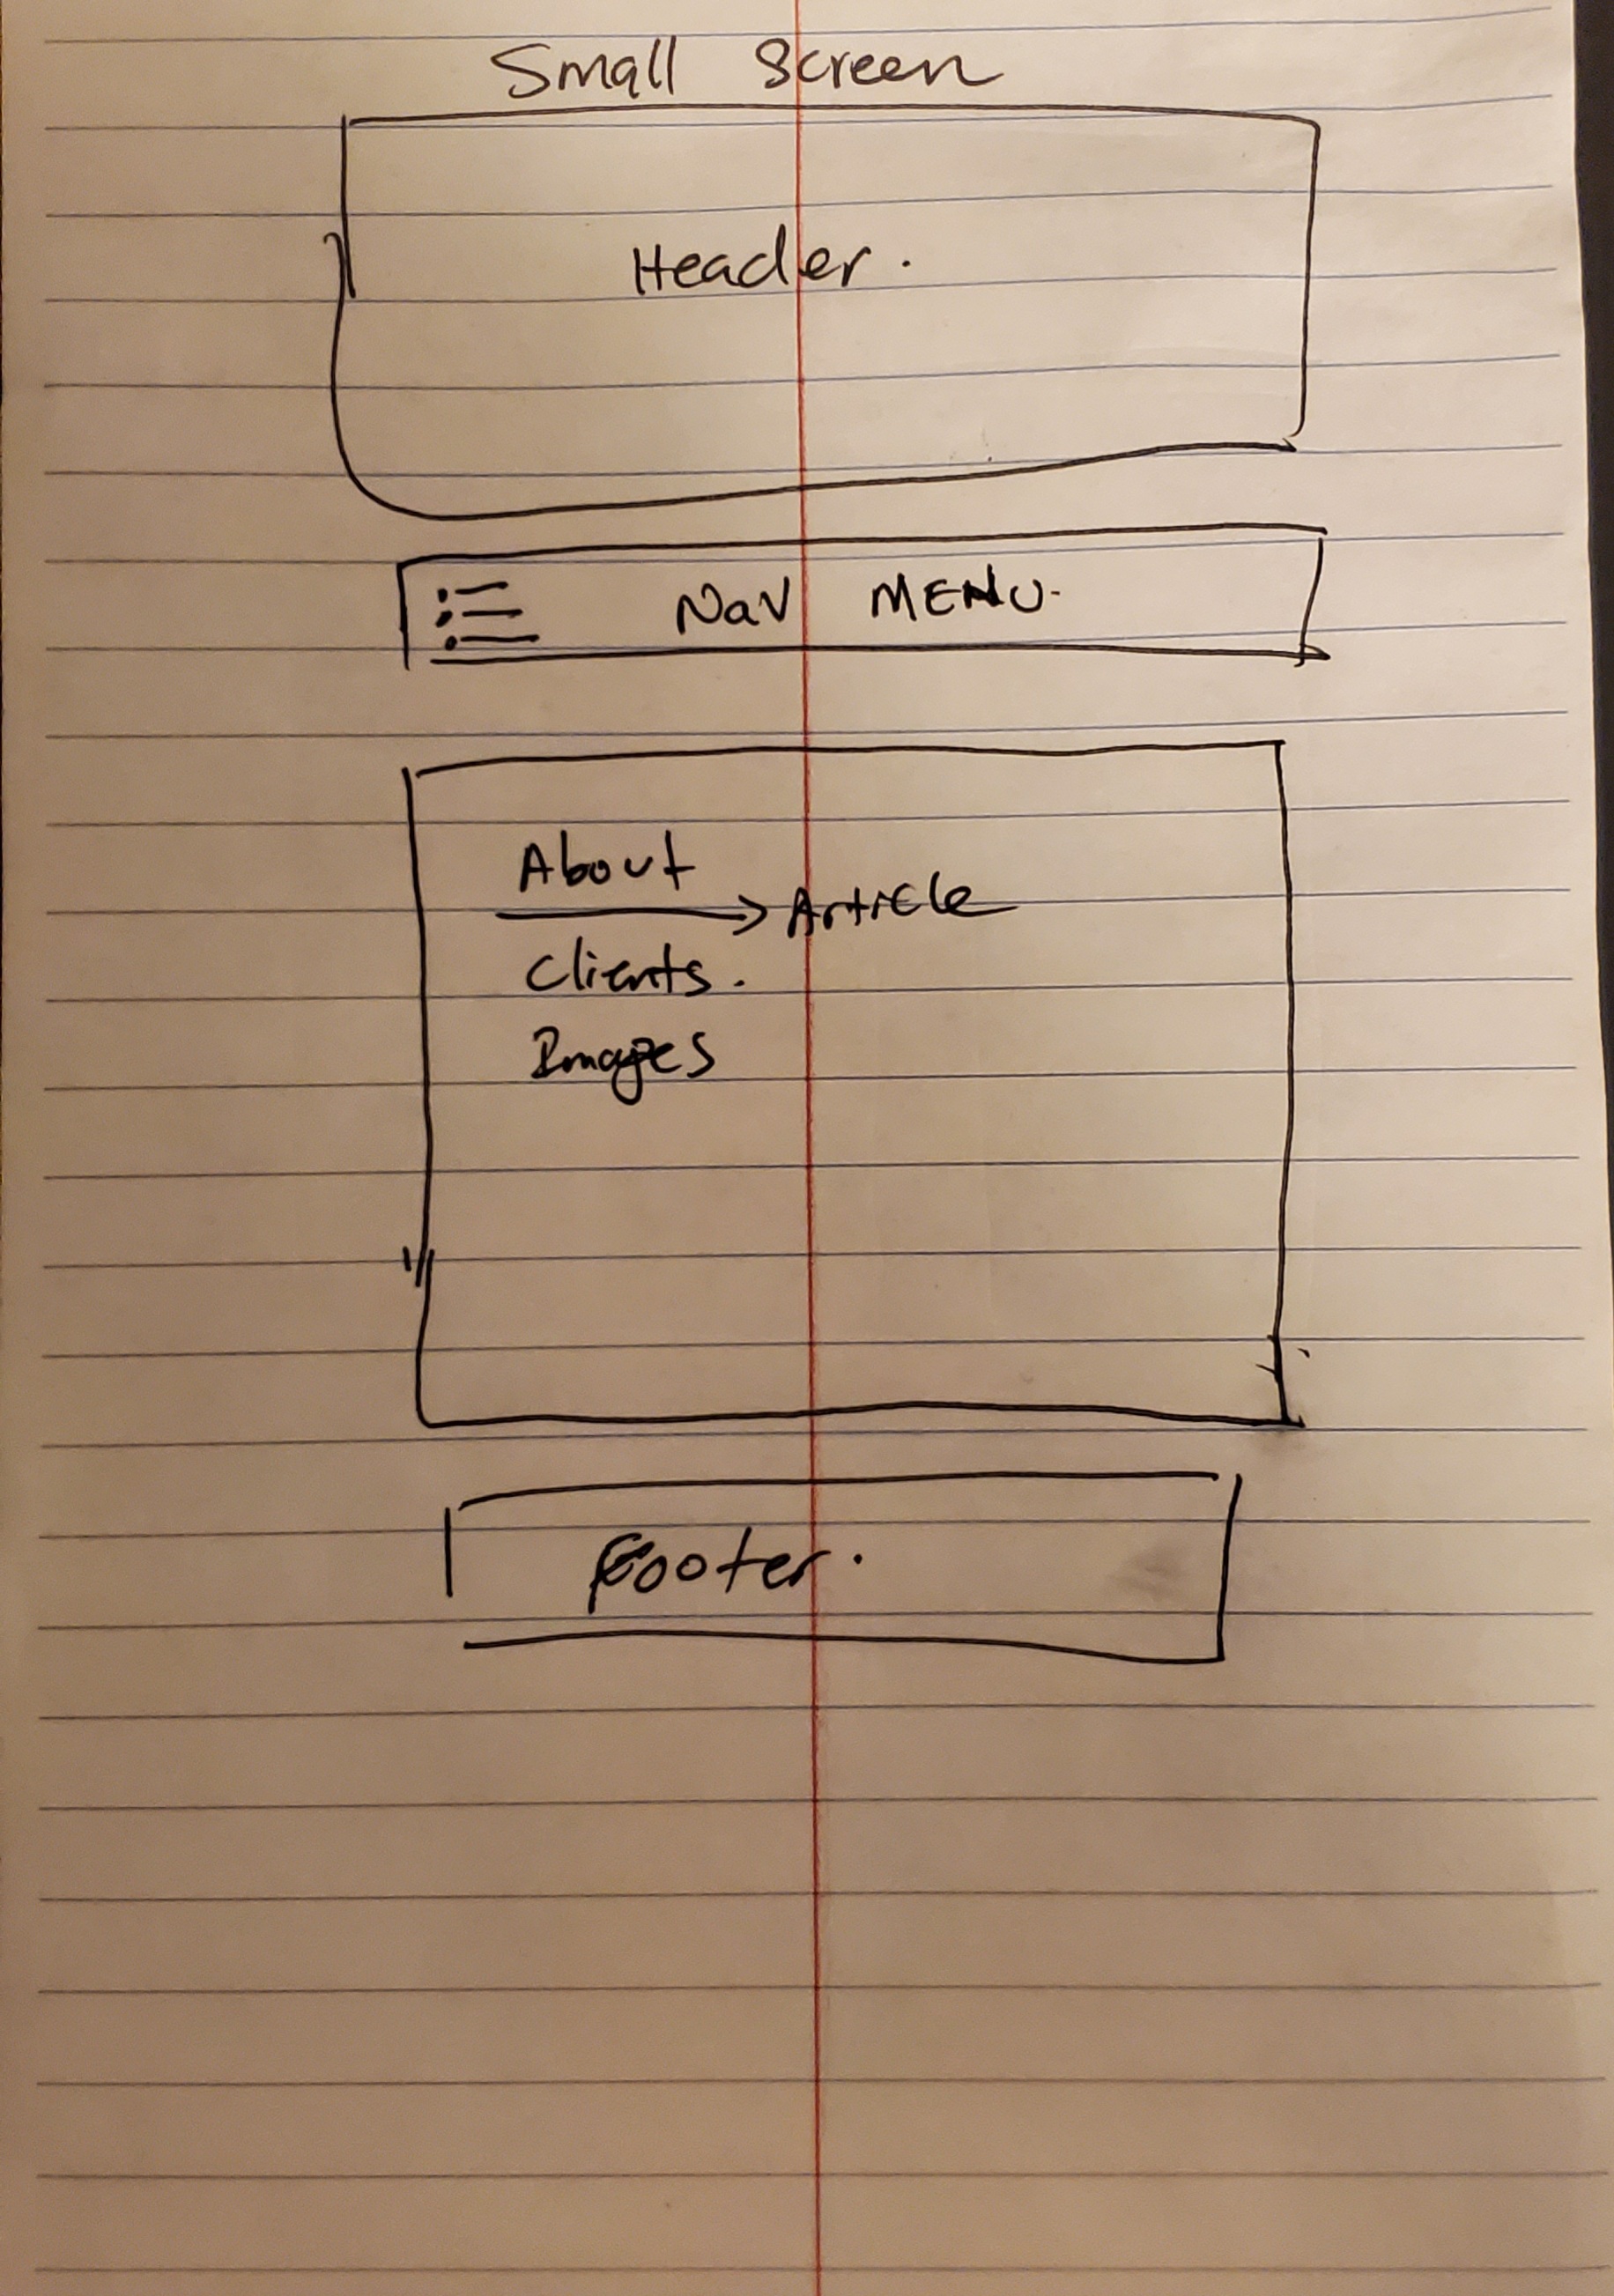 Small Screen
Header.
Nav MENU.
About
→ Article
Clients.
Images
Footer.